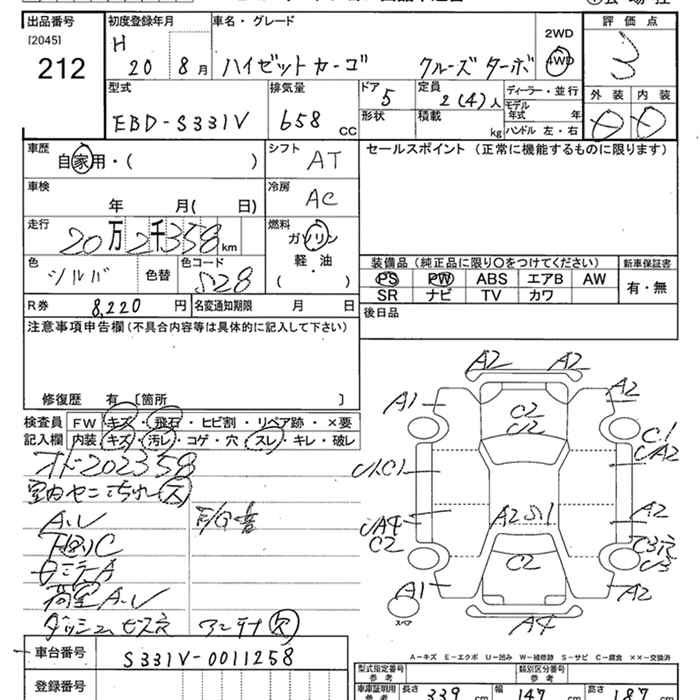 出品番号 初度登録年月 車名・グレード 評価点
[2045] 212
H 20 8月 ハイゼットカーゴ クルーズターボ 2WD 4WD 3
型式 排気量 ドア 定員 ディーラー・並行 外装 内装
EBD-S331V 658 CC 5 2(4)人 モデル年式 年
形状 積載 kg ハンドル 左・右
車歴 自家用・( ) シフト AT セールスポイント (正常に機能するものに限ります)
車検 年 月( 日) 冷房 AC
走行 20万2千358km 燃料 ガソリン 軽・油 ( )
色 シルバ 色替 色コード S28
装備品 (純正品に限り〇をつけてください) 新車保証書
PS PW ABS エアB AW 有・無
SR ナビ TV カワ
R券 8,220円 名変通知期限 月 日 後日品
注意事項申告欄(不具合内容等は具体的に記入して下さい)
修復歴 有 [箇所 ]
検査員 FW キズ・飛石・ヒビ割・リペア跡・×要
記入欄 内装 キズ・汚レ・コゲ・穴・スレ・キレ・破レ
オド202358
A.レ E/G音
荷室A.レ
A2 A2
A1 A2
C2
U2
C1
UA2
A2S1 A2
C2
C2
A1 A2
スペア A4
A-キズ E-エクボ U-凹み W-補修跡 S-サビ C-腐食 ××-交換済
車台番号 S331V-0011258
型式指定番号 参考 類別区分番号 参考
登録番号
車庫証明用 参考 長さ 339 cm 幅 147 cm 高さ 187 cm